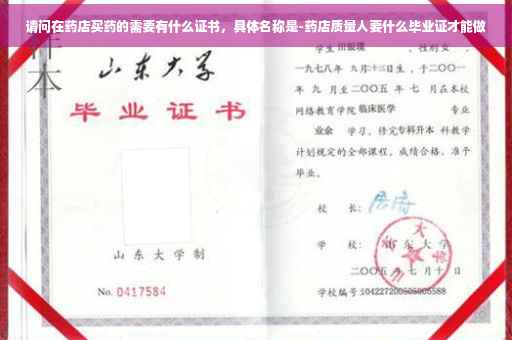 请问在药店买药的需要有什么证书，具体名称是-药店质量人要什么毕业证才能做
样
本
山东大学
毕业证书
山东大学制
No. 0417584
学生
性别女，
一九七八年 九月十三日生，于二〇〇一
年 九 月至二〇〇五 年 七 月在本校
网络教育学院临床医学 专业
业余 学习，修完专科升本 科教学
计划规定的全部课程，成绩合格，准予
毕业。
校 长：
学 校：山东大学
二〇〇五年七月十日
学校编号:104227200505005588